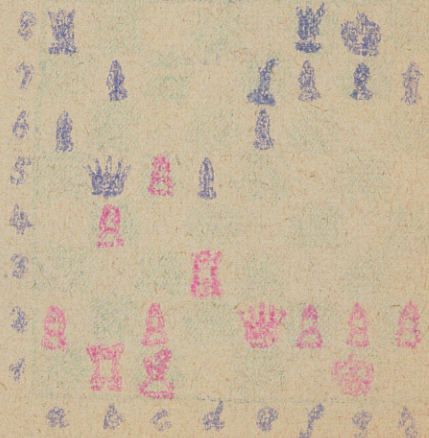 8
7
6
5
4
3
2
1
a b c d e f g h